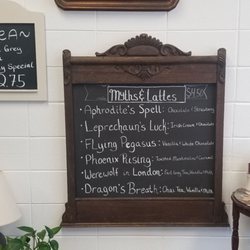 EAN
Grey
Special
2.75
Myths & Lattes $4.50
Aphrodite's Spell: Chocolate & Strawberry
Leprechaun's Luck: Irish Cream & Chocolate
Flying Pegasus: Vanilla & White Chocolate
Phoenix Rising: Toasted Marshmallow & Caramel
Werewolf in London: Earl Grey Tea, Vanilla & Milk
Dragon's Breath: Chai Tea, Vanilla & Milk